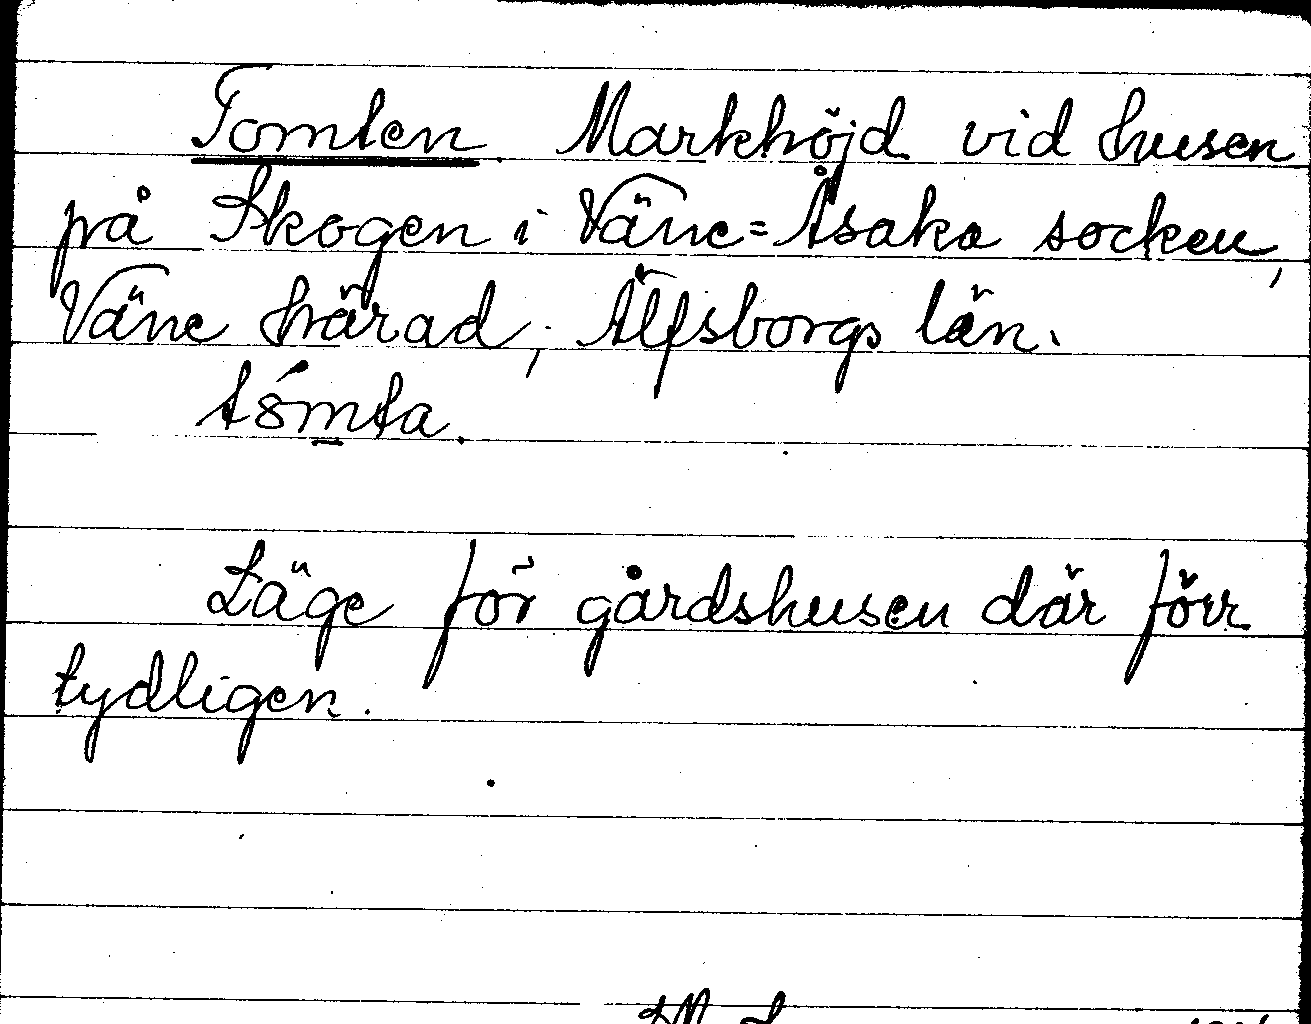 Tomten. Markhöjd vid husen
på Skogen i Väne=Åsaka socken,
Väne härad, Älfsborgs län.
Läge för gårdshusen där förr
tydligen.